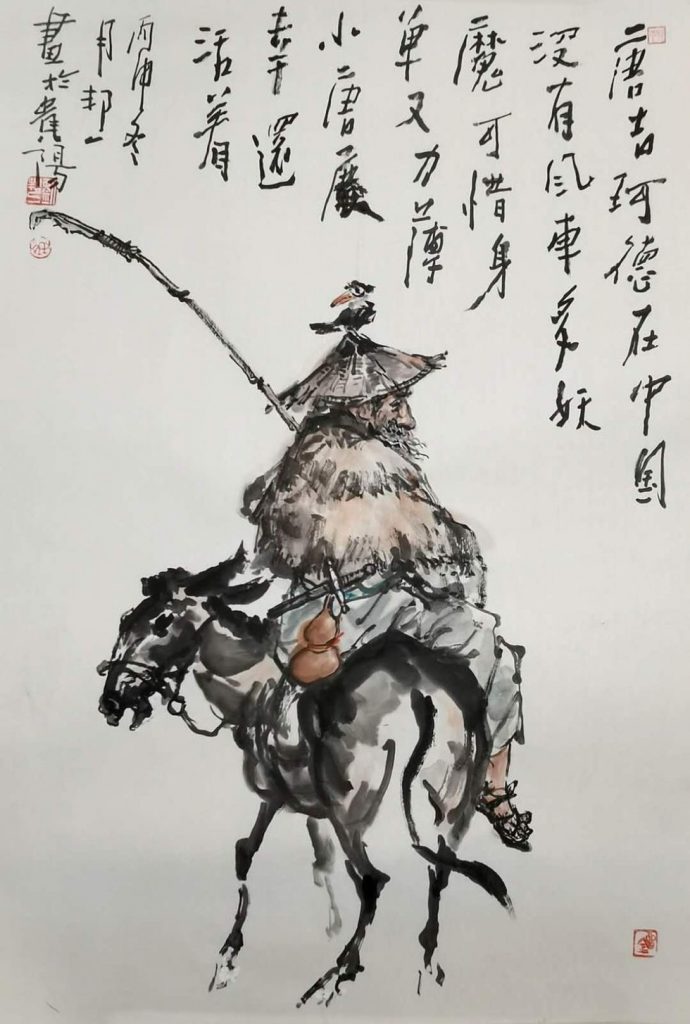 唐吉珂德在中国
没有风車多妖
魔可惜身
单又力薄
小唐慶
幸還
活着
丙申冬
月邦一
畫於陽